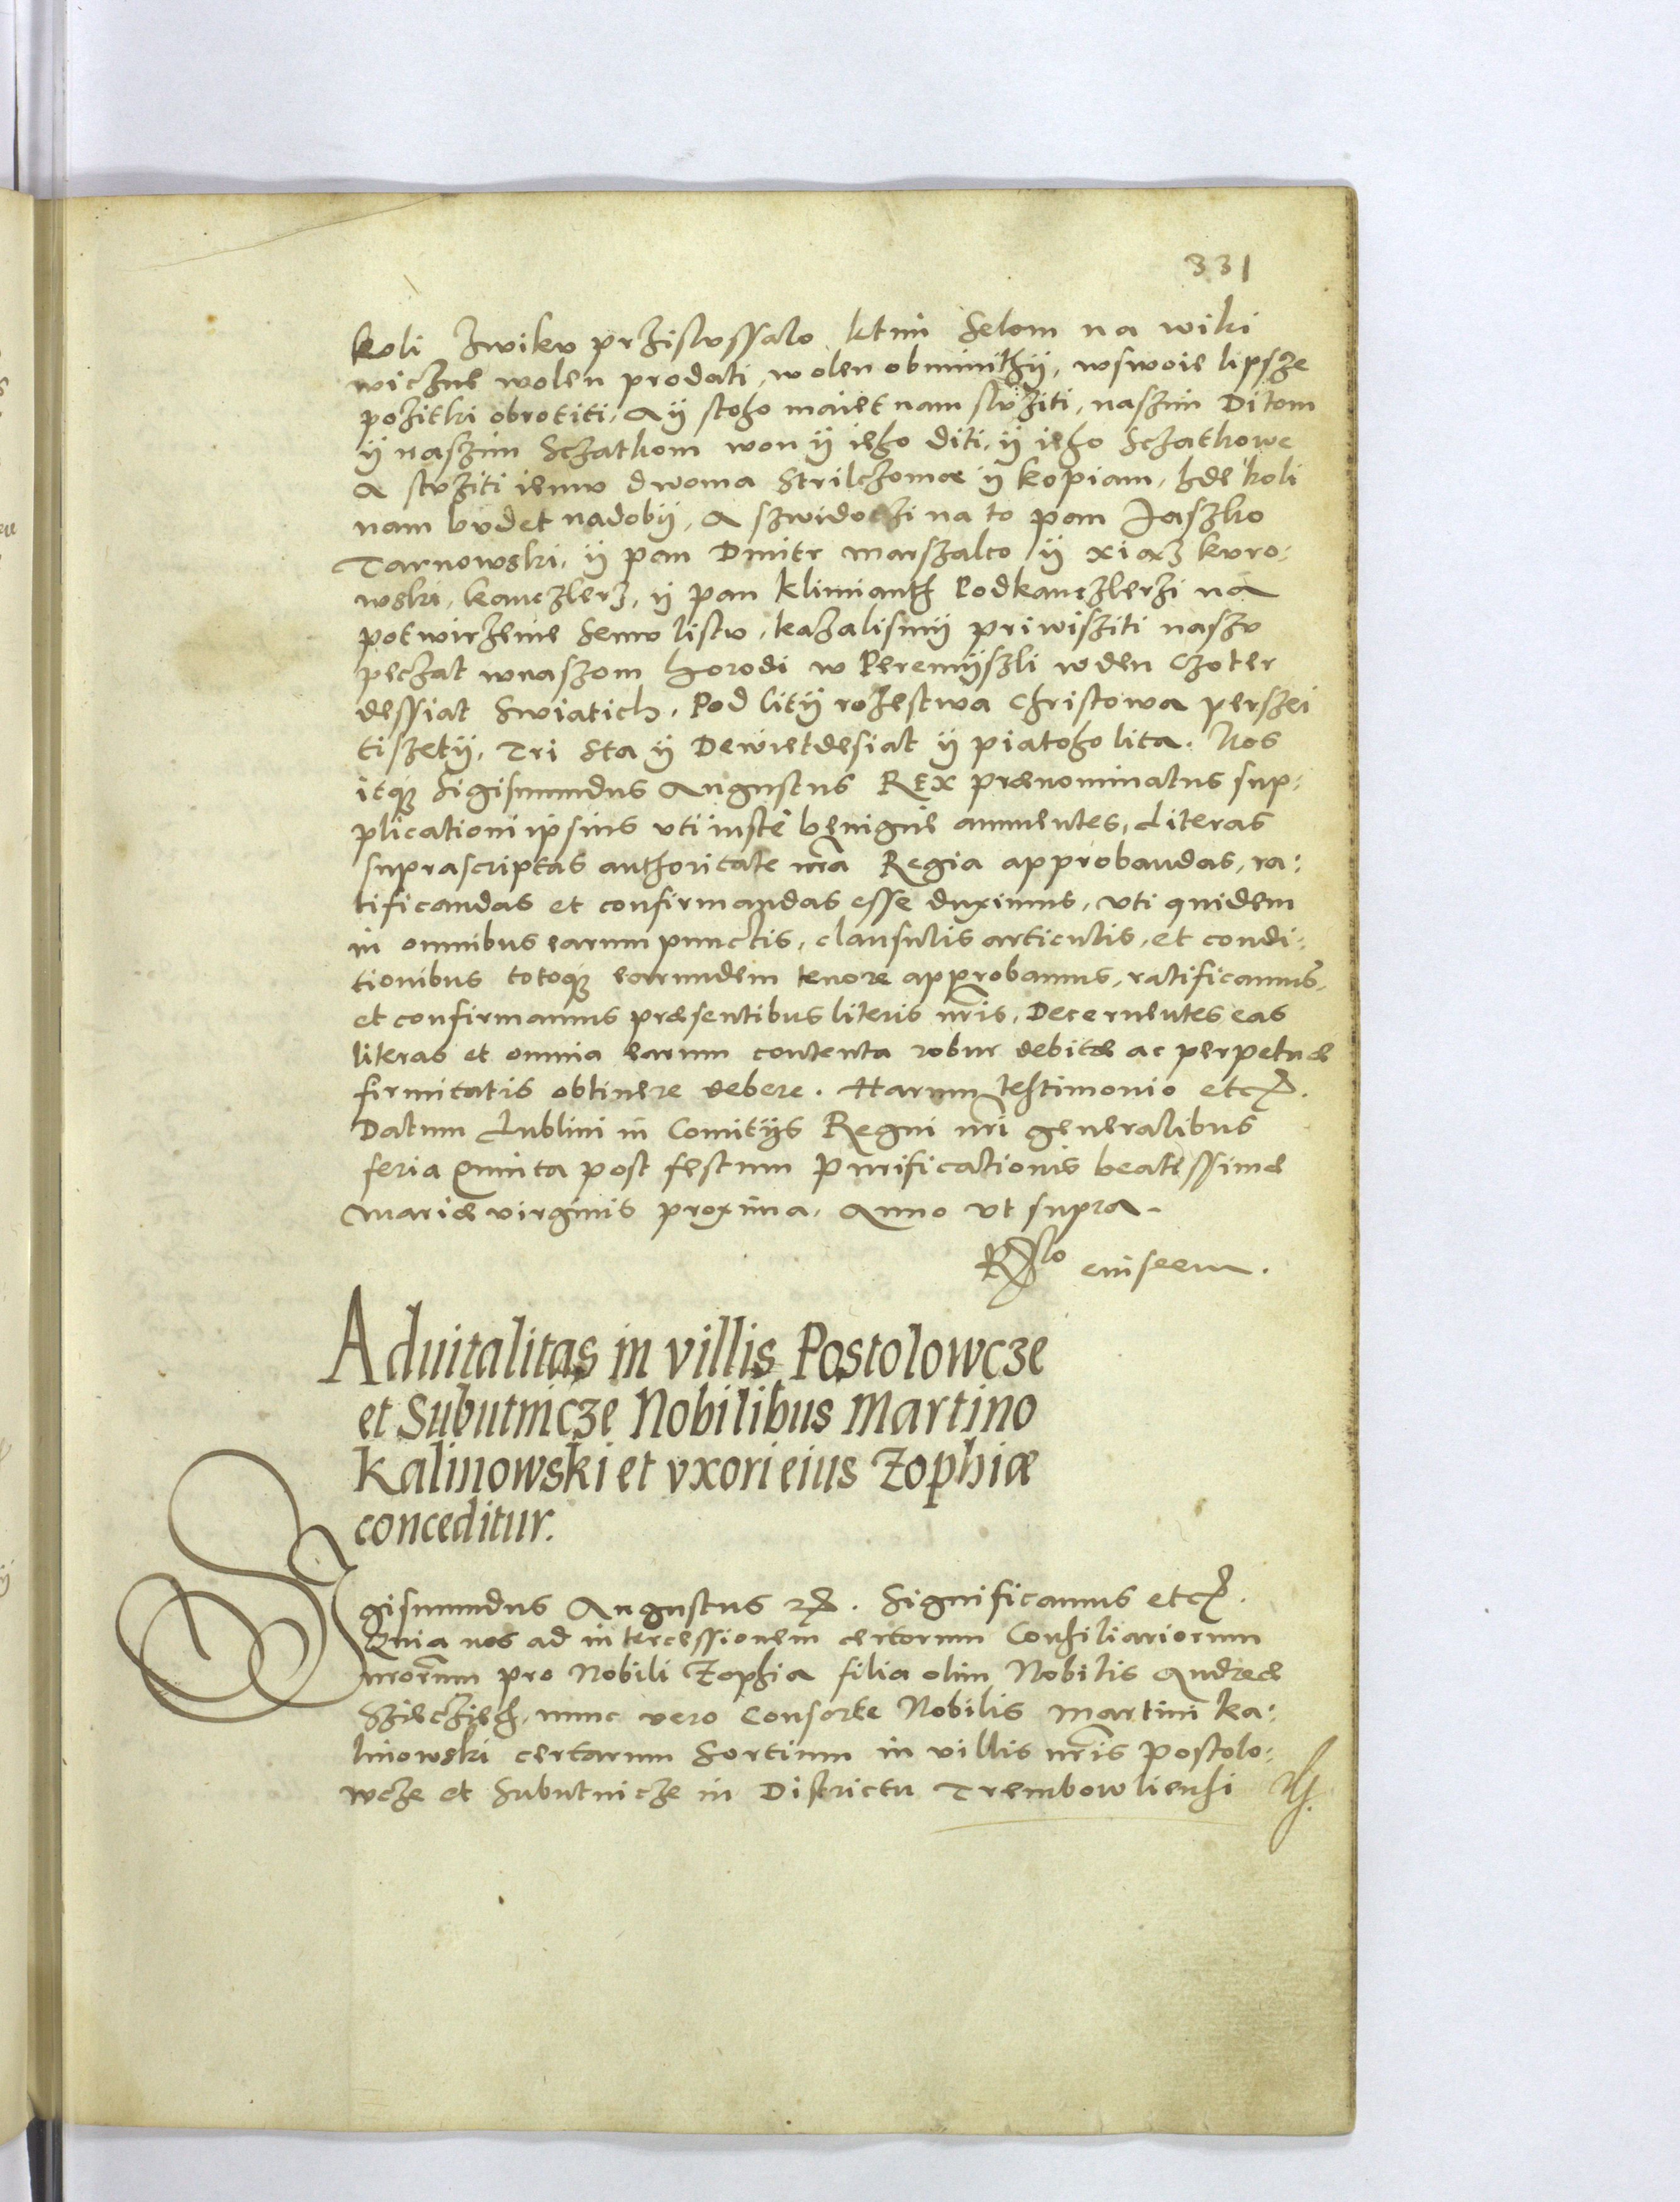 331
koli zwikv przislvssalo ktim selom na wiki
wiczne wolen prodati, wolen obminithÿ, wswoie lipsze
pozitki obrotiti, Aÿ stoho maiet nam slvziti, naszim Ditom
ÿ naszim Sczatkom won ÿ ieho diti, ÿ ieho Sczatkowe
A slvziti iemv dwoma Strilczoma ÿ kopiam, hde koli
nam bvdet nadobÿ, A szwidoczi na to pan Jaszko
Tarnowski, ÿ pan Dmitr marszalco ÿ xiaz kvro:
wski, kanczlerz, ÿ pan klimianth Podkanczlerzi na
potwirzenie semv listv, kazalismÿ priwisziti naszv
peczat wnaszom horodi w Peremÿszli wden Czoter
dessiat Swiatich. Pod litÿ rozestwa Christowa perszei
tiszetÿ, Tri Sta ÿ Dewietdesiat ÿ piatoho lita. Nos
itaq̃ Sigismundus Augustus REX prænominatus sup:
plicationi ipsius vti iuste benigne annuentes, Literas
suprascriptas authoritate nr̃a Regia approbandas, ra:
tificandas et confirmandas esse duximus, vti quidem
in omnibus earum punctis, clausulis articulis, et condi:
tionibus totoq̃ earundem tenore approbamus, ratificamus,
et confirmamus præsentibus literis nr̃is, Decernentes eas
literas et omnia earum contenta robur debitæ ac perpetuæ
firmitatis obtinere debere. Harum testimonio etc.
Datum Lublini in Comitÿs Regni nr̃i generalibus
feria quinta post festum Purificationis beatissimæ
Mariæ virginis proxima, Anno vt supra.
eiusdem.
Aduitalitas in villis Postolowcze
et Subutnicze Nobilibus Martino
Kalinowski et vxori eius Zophiæ
conceditur.
Sigismundus Augustus etc. Significamus etc.
Quia nos ad intercessionem certorum Consiliariorum
nrõrum pro Nobili Zophia filia olim Nobilis Andreæ
nunc vero Consorte Nobilis Martini Ka:
linowski certarum Sortium in villis nr̃is Postolo:
wcze et Subutnicze in Districtu Trembowliensi